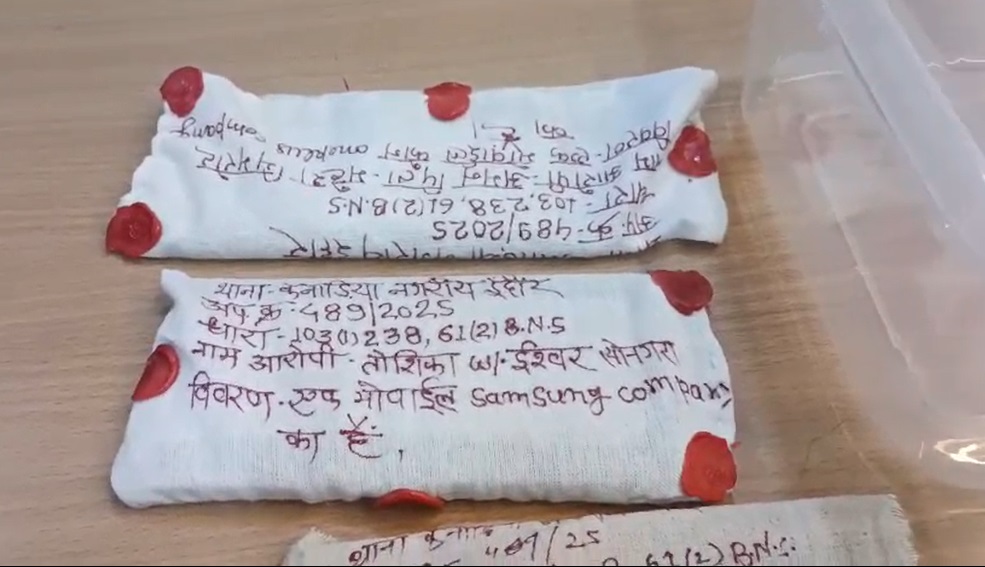 अप. क्र. 489/2025
धारा - 103, 238, 61(2) B.N.S
नाम आरोपी - अमन पिता
विवरण - एक मोबाईल फोन oneplus company
का है।
थाना - कनाडिया नगरीय इंदौर
अप. क्र. 489/2025
धारा - 103(1) 238, 61(2) B.N.S
नाम आरोपी - तोशिका w/० ईश्वर सोनगरा
विवरण - एक मोबाईल samsung company
का है,
थाना
489/25
61(2) B.N.S.